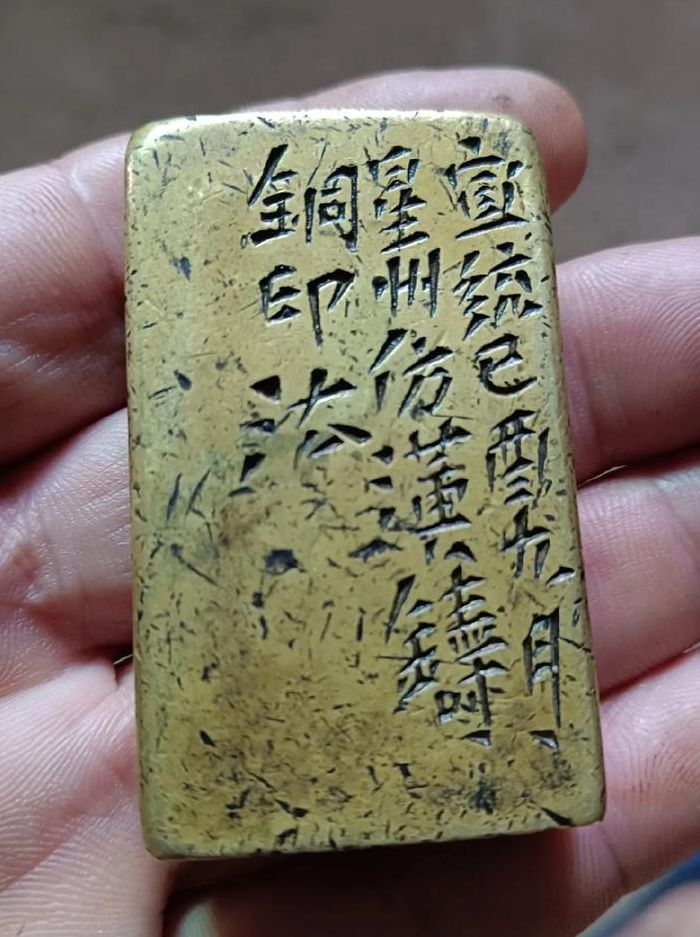 宣統己酉九月
星州仿漢鑄
銅印法